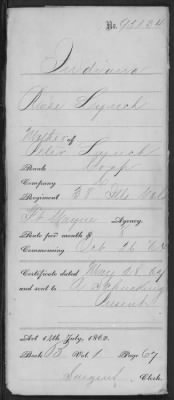 No. 93134
Indiana
Rose Lynch
Mother of
Peter Lynch
Rank
Company
Regiment 38 Ills Vols
Ft Wayne Agency.
Rate per month $ 8
Commencing Oct 26 '64
Certificate dated May 08 '67
and sent to A
Present
Act 14th July, 1862.
Book B Vol 1 Page 67
Sargent Clerk.